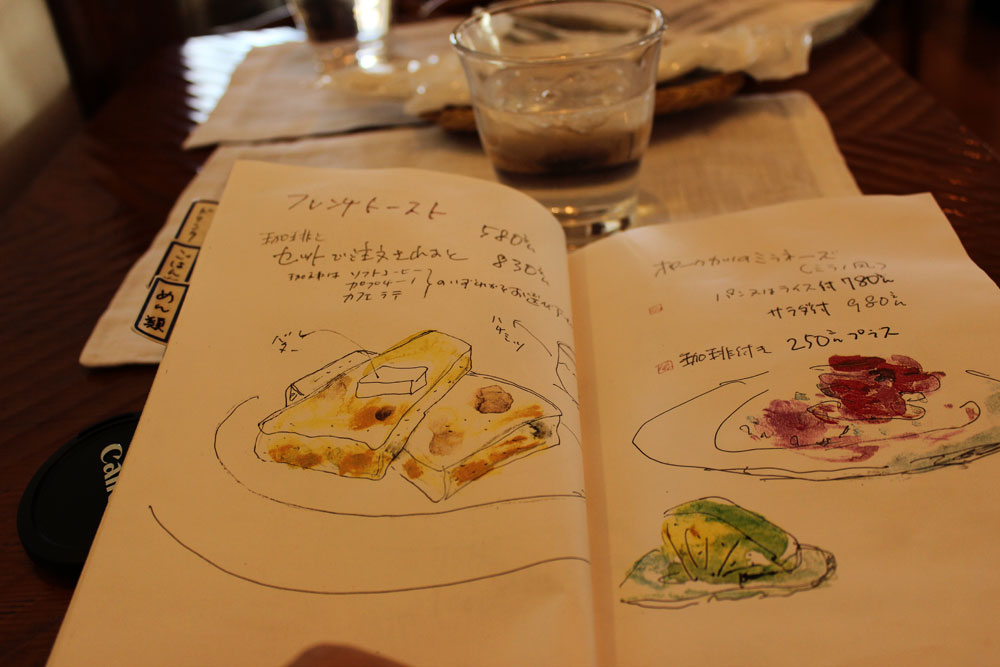 フレンチトースト
580えん
珈琲と
セットで注文されると 830えん
珈琲は ソフトコーヒー
カプチーノ
カフェラテ
のいずれかを
バター
ハチミツ
ポークカツのミラネーズ
(ミラノ風)
パン又はライス付 780えん
サラダ付 980えん
珈琲付き 250えんプラス
ごはん
めん類
Can